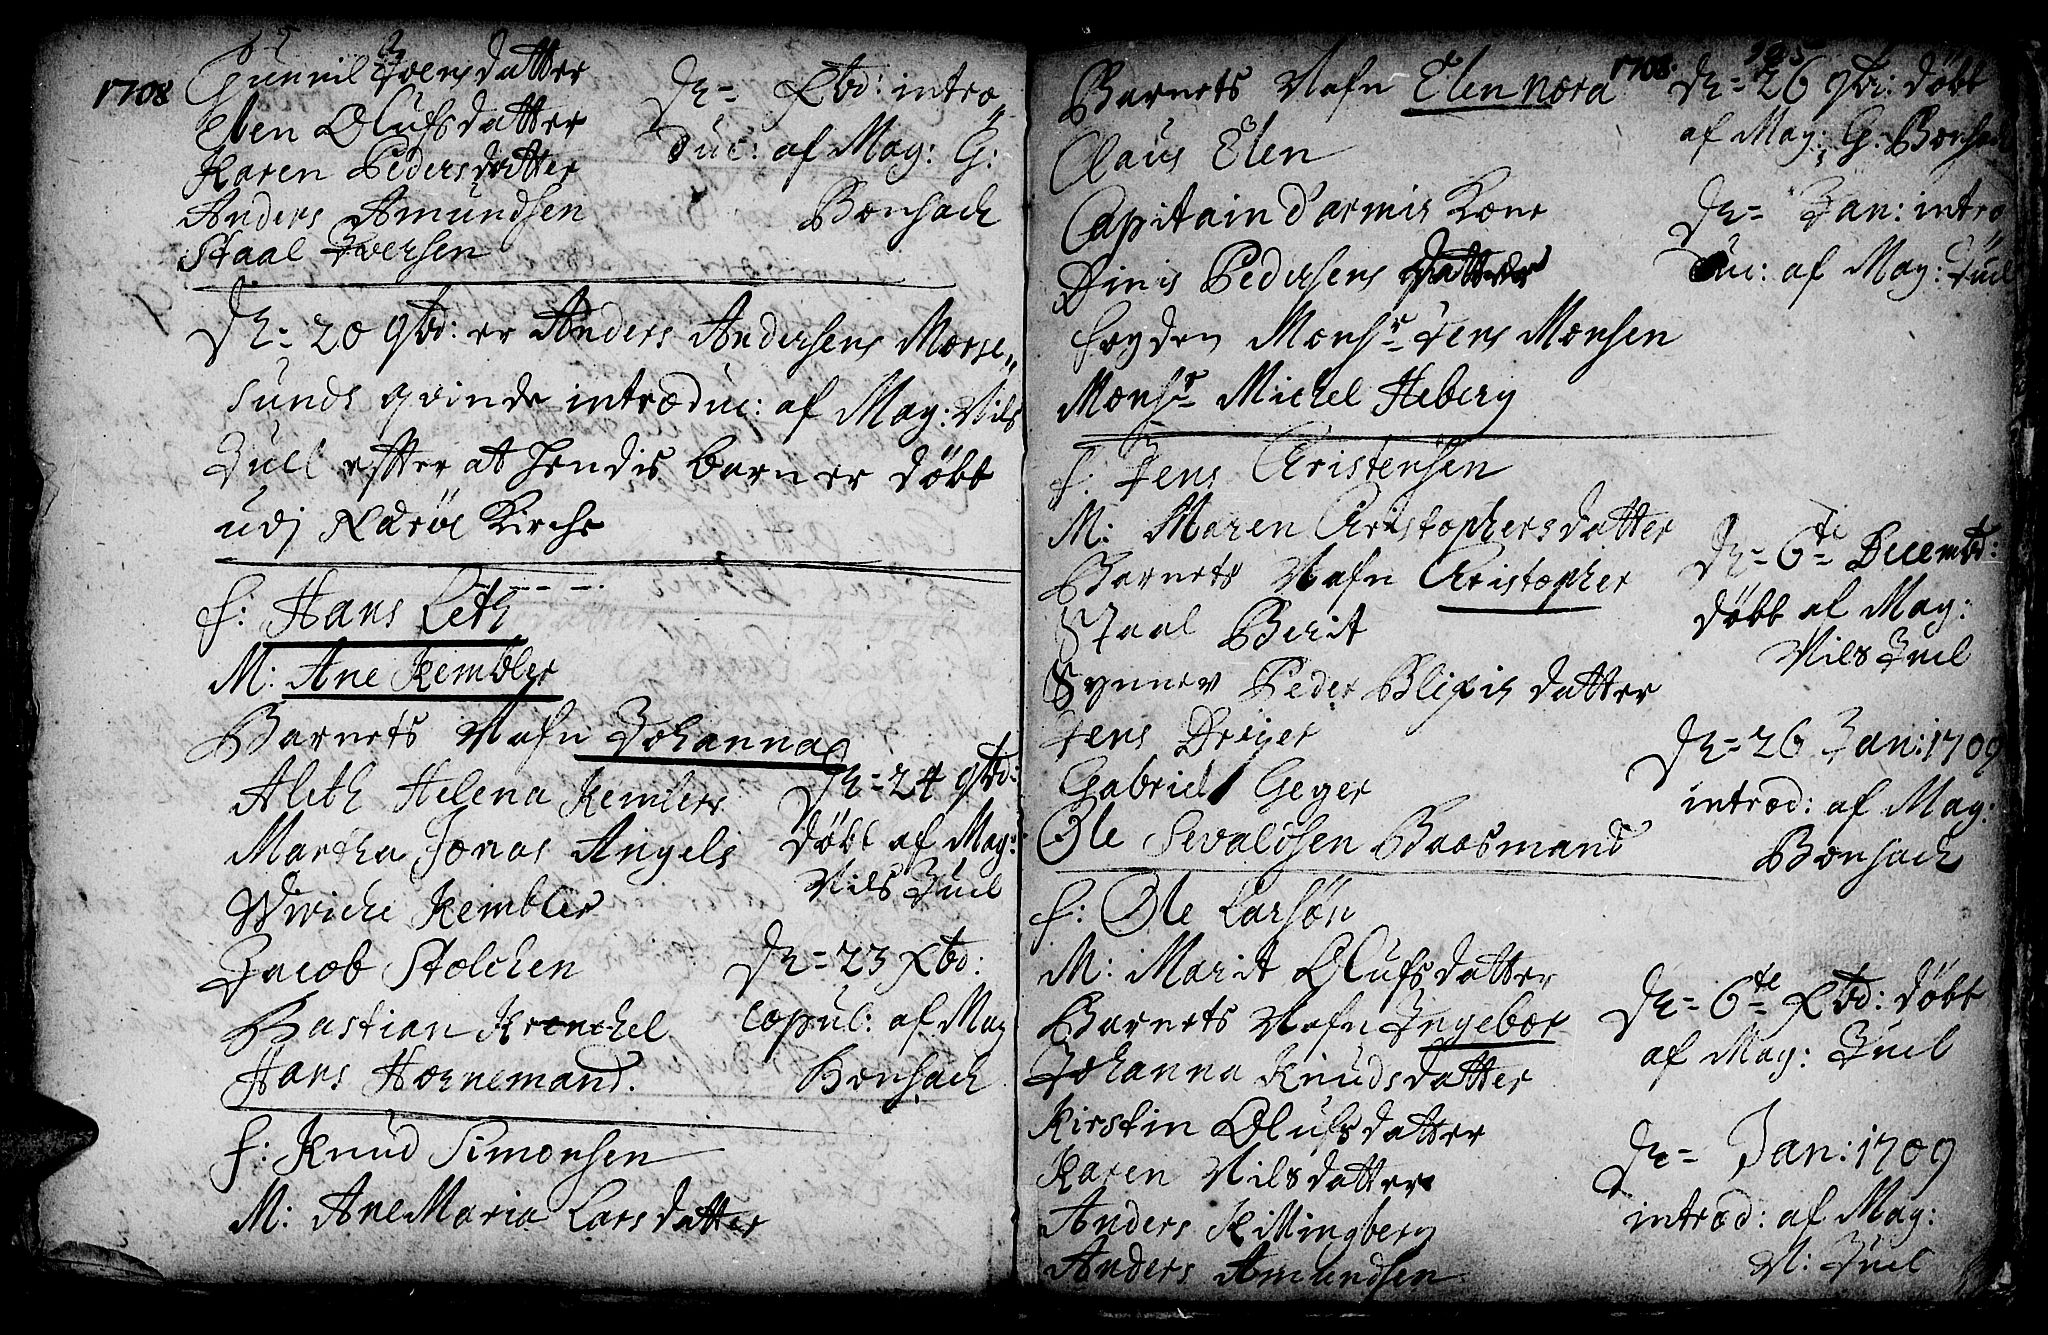 1708
Gunnil Iversdatter
Elen Olufsdatter
Karen Pedersdatter
Anders Amundsen
Staal Iversen
D= Xbd: intro
duc: af Mag: G:
Bonsach
D= 20 9bd: er Anders Andersens Morse„
sunds qvinde introduc: af Mag: Nils
Juel efter at hendis barn er døbt
udj Kirche
f: Hans Leth
M: Ane Kembler
Barnets Nafn Johanna
Aleth Helena Kemlers
Martha Jonas Angels
Wiviche Kembler
Jacob Stolchen
Bastian Krenchel
Hans Hornemand.
D= 24 9bd:
døbt af Mag:
Nils Juel
D= 23 Xbd:
copul: af Mag
Bonsach
f: Knud Simonsen
M: Ane Maria Larsdatter
1708
195
Barnets Nafn Elennora
Claus Elen
Capitain d'armis Kone
Dinis Pedersens datter
fogden Monsr Jens Monsen
Monsr Michel Heberg
D= 26 9br: døbt
af Mag: G: Bonsach
D= Jan: intro
duc: af Mag: Juel
f: Jens Christensen
M: Maren Christophersdatter
Barnets Nafn Christopher
Staal Berit
Synnev Peder Blixis datter
Jens Dreyer
Gabriel Geyer
Ole Sevaldsen Baasmand
D= 6te Decembd:
døbt af Mag:
Nils Juel
D= 26 Jan: 1709
introd: af Mag:
Bonsach
f: Ole Larsøn
M: Marit Olufsdatter
Barnets Nafn Ingebor
Johanna Knudsdatter
Kirstin Olufsdatter
Karen Nilsdatter
Anders Killingberg
Anders Amundsen
D= 6te Xbd: døbt
af Mag: Juel
D= Jan: 1709
introd: af Mag:
N: Juel